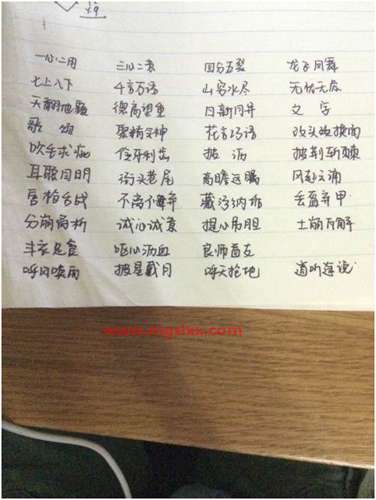 一心二用 三心二意 四分五裂 龙飞凤舞
七上八下 千言万语 山穷水尽 无忧无虑
天翻地覆 德高望重 日新月异 文字
歌颂 聚精会神 花言巧语 改头换面
吹毛求疵 伶牙利齿 披荆斩棘
耳聪目明 街头巷尾 高瞻远瞩 风起云涌
唇枪舌战 藏污纳垢 丢盔弃甲
分崩离析 诚心诚意 提心吊胆 土崩瓦解
丰衣足食 呕心沥血 良师益友
呼风唤雨 披星戴月 呼天抢地 道听途说
www.mgslxx.com